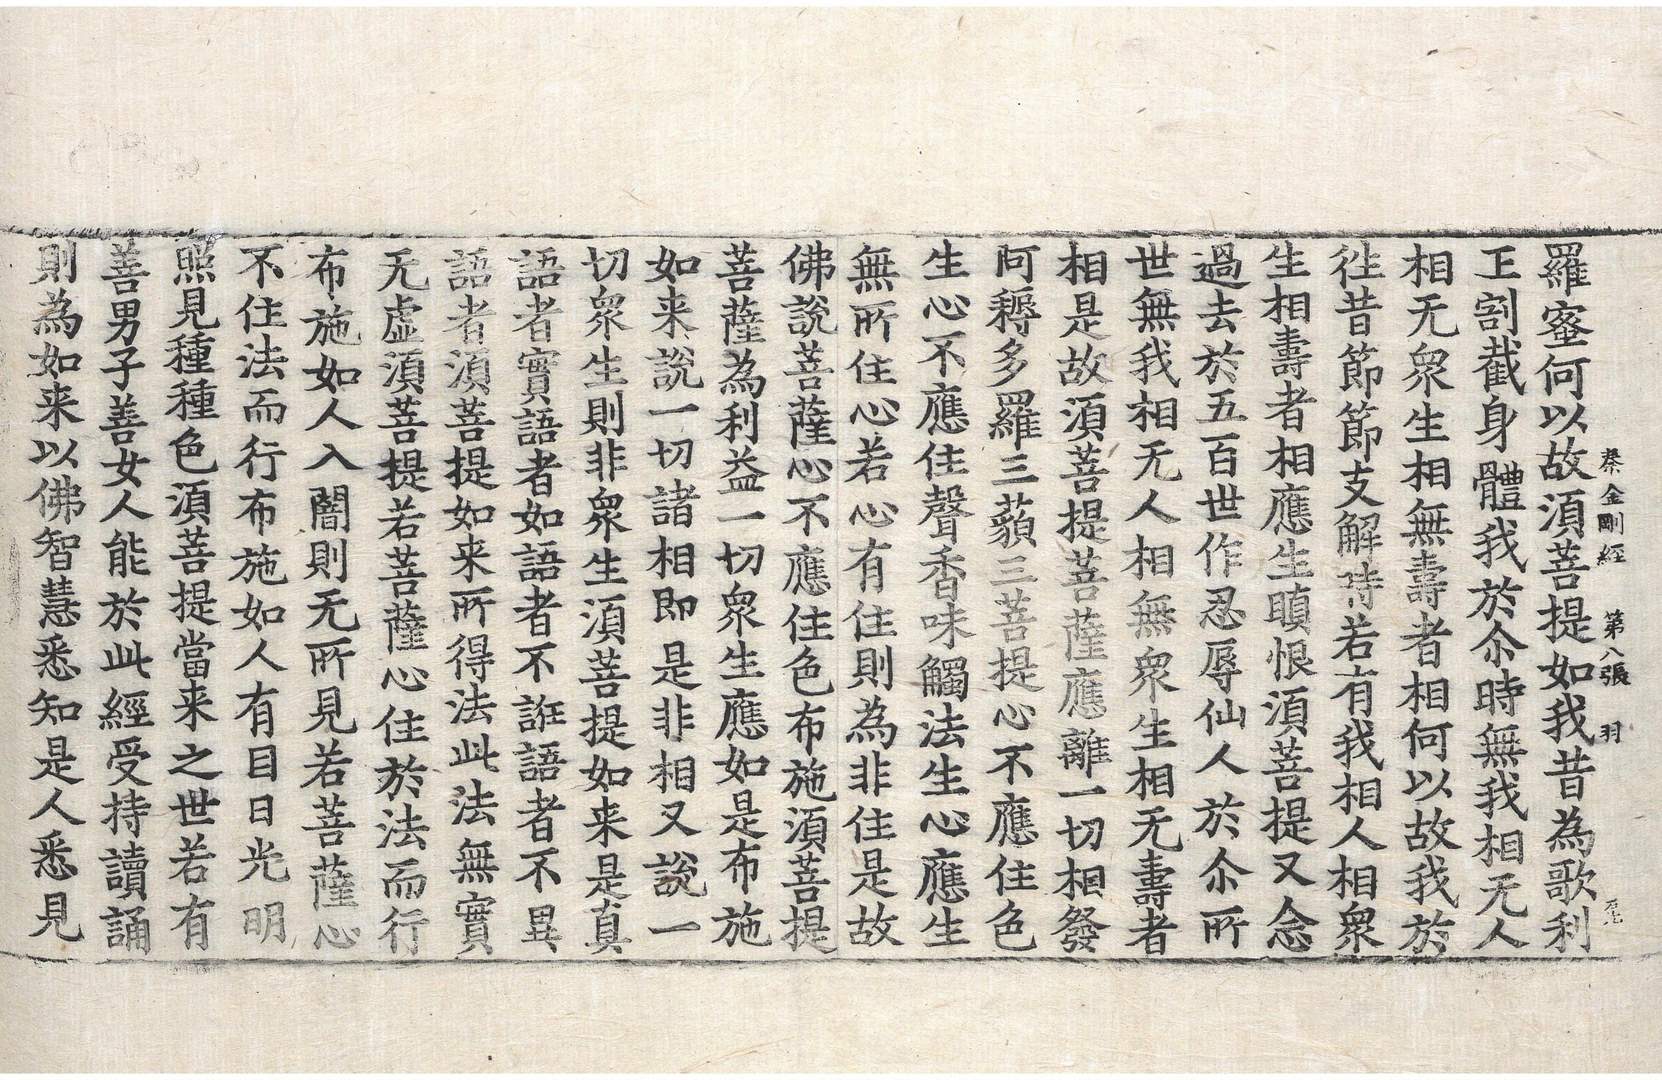 秦金剛經 第八張 羽
羅蜜何以故須菩提如我昔為歌利
王割截身體我於尒時無我相无人
相无衆生相無壽者相何以故我於
往昔節節支解時若有我相人相衆
生相壽者相應生瞋恨須菩提又念
過去於五百世作忍辱仙人於尒所
世無我相无人相無衆生相无壽者
相是故須菩提菩薩應離一切相發
阿耨多羅三藐三菩提心不應住色
生心不應住聲香味觸法生心應生
無所住心若心有住則為非住是故
佛說菩薩心不應住色布施須菩提
菩薩為利益一切衆生應如是布施
如来說一切諸相即是非相又說一
切衆生則非衆生須菩提如来是真
語者實語者如語者不誑語者不異
語者須菩提如来所得法此法無實
无虛須菩提若菩薩心住於法而行
布施如人入闇則无所見若菩薩心
不住法而行布施如人有目日光明
照見種種色須菩提當来之世若有
善男子善女人能於此經受持讀誦
則為如来以佛智慧悉知是人悉見